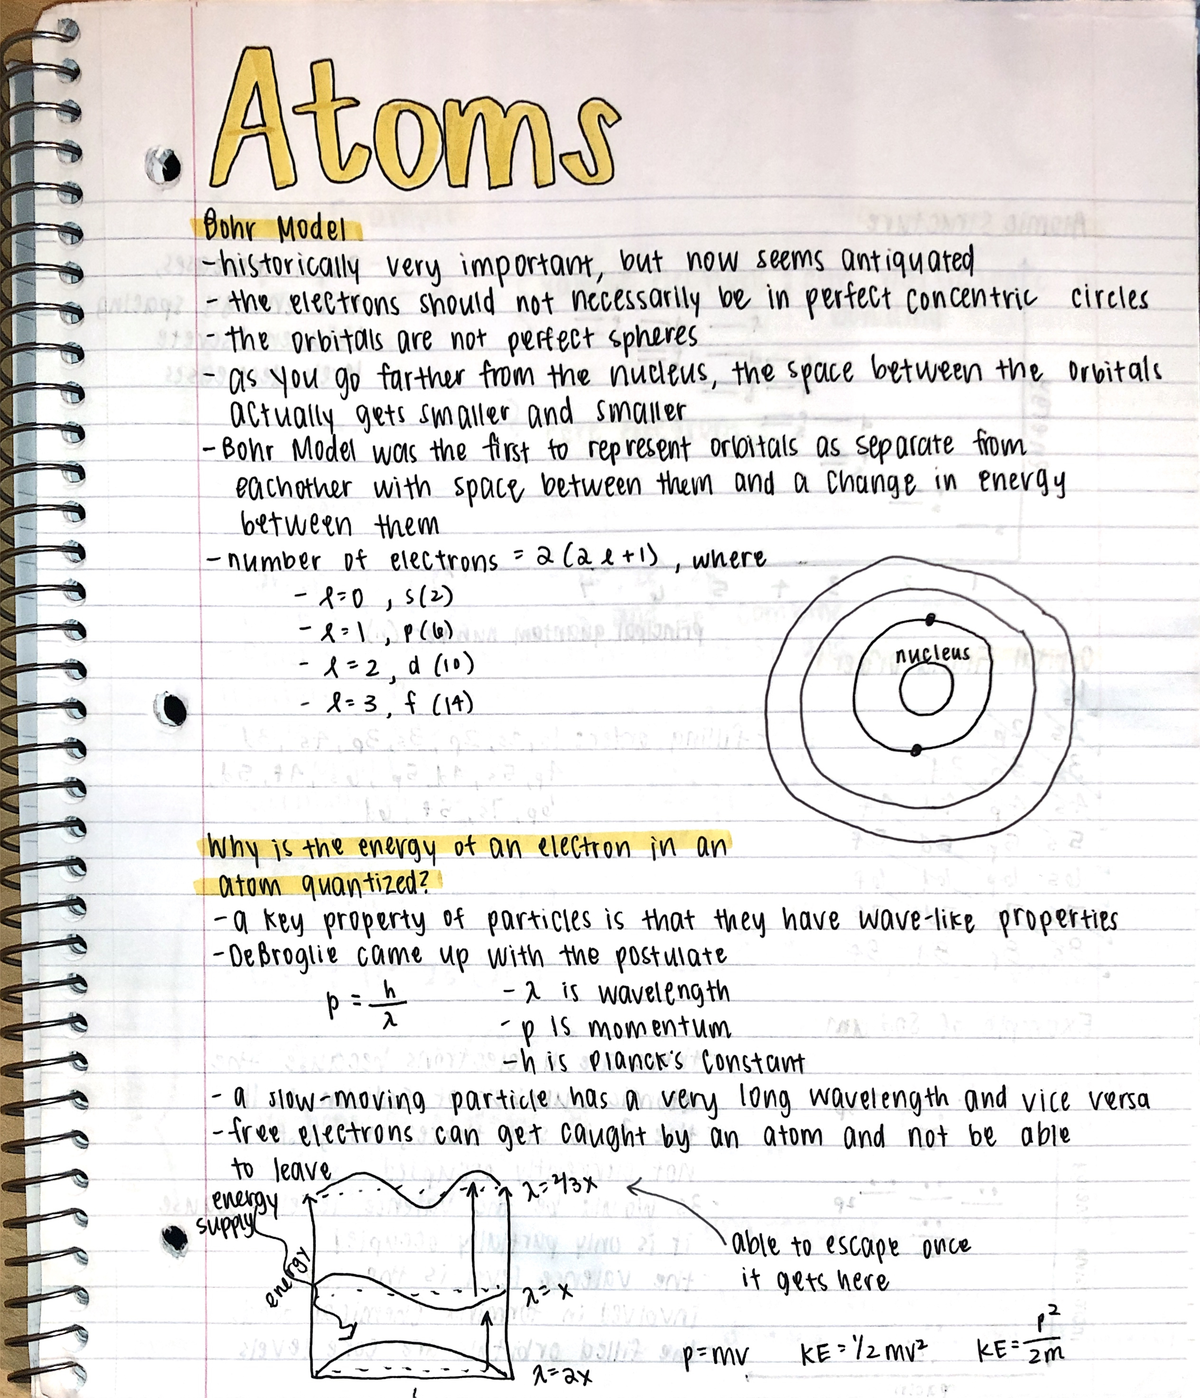 Atoms
Bohr Model
-historically very important, but now seems antiquated
- the electrons should not necessarily be in perfect concentric circles
- the orbitals are not perfect spheres
- as you go farther from the nucleus, the space between the orbitals
actually gets smaller and smaller
- Bohr Model was the first to represent orbitals as separate from
eachother with space between them and a change in energy
between them
- number of electrons = 2(2l+1), where
- l=0, s(2)
- l=1, p(6)
- l=2, d (10)
- l=3, f (14)
nucleus
Why is the energy of an electron in an
atom quantized?
- a key property of particles is that they have wave-like properties
- DeBroglie came up with the postulate
p = h/λ
- λ is wavelength
- p is momentum
- h is Planck's constant
- a slow-moving particle has a very long wavelength and vice versa
- free electrons can get caught by an atom and not be able
to leave
energy
supply
energy
λ=2/3x
able to escape once
it gets here
λ=x
λ=2x
p=mv
KE=1/2mv²
KE=p²/2m